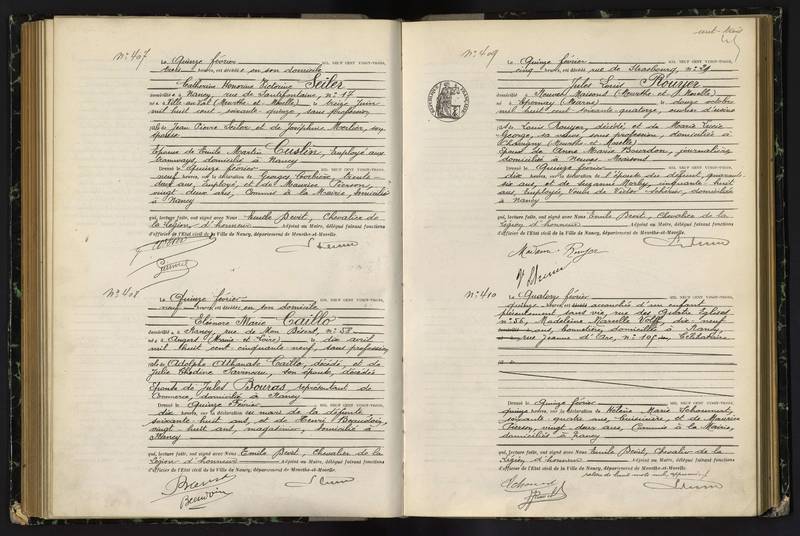 N° 407
Le Quinze février MIL NEUF CENT VINGT-TROIS,
trois heures, est décédée en son domicile
Catherine Honorine Victorine Seiler
domiciliée à Nancy, rue de Saintifontaine, n° 17
née à Ville au Val (Meurthe et Moselle) le treize Juin
mil huit cent soixante quinze, sans profession
fille de Jean Pierre Seiler et de Joséphine Mortier, ses
époux
Epouse de Emile Martin Custin, Employé aux
tramways, domicilié à Nancy
Dressé le Quinze février MIL NEUF CENT VINGT-TROIS,
neuf heures, sur la déclaration de Georges Corbière, trente
deux ans, employé, et de Maurice Pierson,
vingt deux ans, Commis à la Mairie, domiciliés
à Nancy
qui, lecture faite, ont signé avec Nous Emile Bevit, Chevalier de
la Légion d'honneur Adjoint au Maire, délégué faisant fonctions
d'officier de l'Etat civil de la Ville de Nancy, département de Meurthe-et-Moselle.
N° 408
Le Quinze février MIL NEUF CENT VINGT-TROIS,
neuf heures, est décédée en son domicile
Eléonore Marie Caillo
domiciliée à Nancy, rue de Mon Désert, n° 58
née à Angers (Maine et Loire) le dix avril
mil huit cent cinquante neuf, sans profession
fille de Adolphe Athanate Caillo, décédé, et de
Julie son épouse, décédée
Epouse de Jules Bouras, représentant de
Commerce, domicilié à Nancy
Dressé le Quinze Février MIL NEUF CENT VINGT-TROIS,
dix heures, sur la déclaration du mari de la défunte
soixante huit ans, et de Henri Beaudoin,
vingt huit ans, magasinier, domicilié à
Nancy
qui, lecture faite, ont signé avec Nous Emile Bevit, Chevalier de la
Légion d'honneur Adjoint au Maire, délégué faisant fonctions
d'officier de l'Etat civil de la Ville de Nancy, département de Meurthe-et-Moselle.
Beaudoin
N° 409
Le Quinze février MIL NEUF CENT VINGT-TROIS,
cinq heures, est décédé rue de Strasbourg, n° 31
Jules Louis Rouyer
domicilié à Neuves Maisons (Meurthe et Moselle)
né à Epernay (Marne) le douze octobre
mil huit cent soixante quatorze, ouvrier d'usine
fils de Louis Rouyer, décédé, et de Marie Lucie
George, sa veuve, sans profession, domiciliée à
Chaligny (Meurthe et Moselle)
Epoux de Marie Bourdon, journalière
domiciliée à Neuves Maisons
Dressé le Quinze février MIL NEUF CENT VINGT-TROIS,
dix heures, sur la déclaration de l'épouse du défunt, quarante
six ans, et de Suzanne Morley, cinquante huit
ans, Employée, Veuve de Victor domiciliée
à Nancy
qui, lecture faite, ont signé avec Nous Emile Bevit, Chevalier de la
Légion d'honneur Adjoint au Maire, délégué faisant fonctions
d'officier de l'Etat civil de la Ville de Nancy, département de Meurthe-et-Moselle.
Madame Rouyer
N° 410
Le Quatorze février MIL NEUF CENT VINGT-TROIS,
quatorze heures, est accouchée d'un enfant
présentement sans vie, rue des Quatre Eglises
n° 56, Madeleine Marcelle Voltz, dix neuf
ans, domiciliée à Nancy,
rue Jeanne d'Arc, n° 105 Célibataire
Dressé le Quinze février MIL NEUF CENT VINGT-TROIS,
quinze heures, sur la déclaration de Hélène Marie
soixante quatre ans, et de Maurice
Pierson, vingt deux ans, Commis à la Mairie,
domiciliés à Nancy
qui, lecture faite, ont signé avec Nous Emile Bevit, Chevalier de la
Légion d'honneur Adjoint au Maire, délégué faisant fonctions
d'officier de l'Etat civil de la Ville de Nancy, département de Meurthe-et-Moselle.